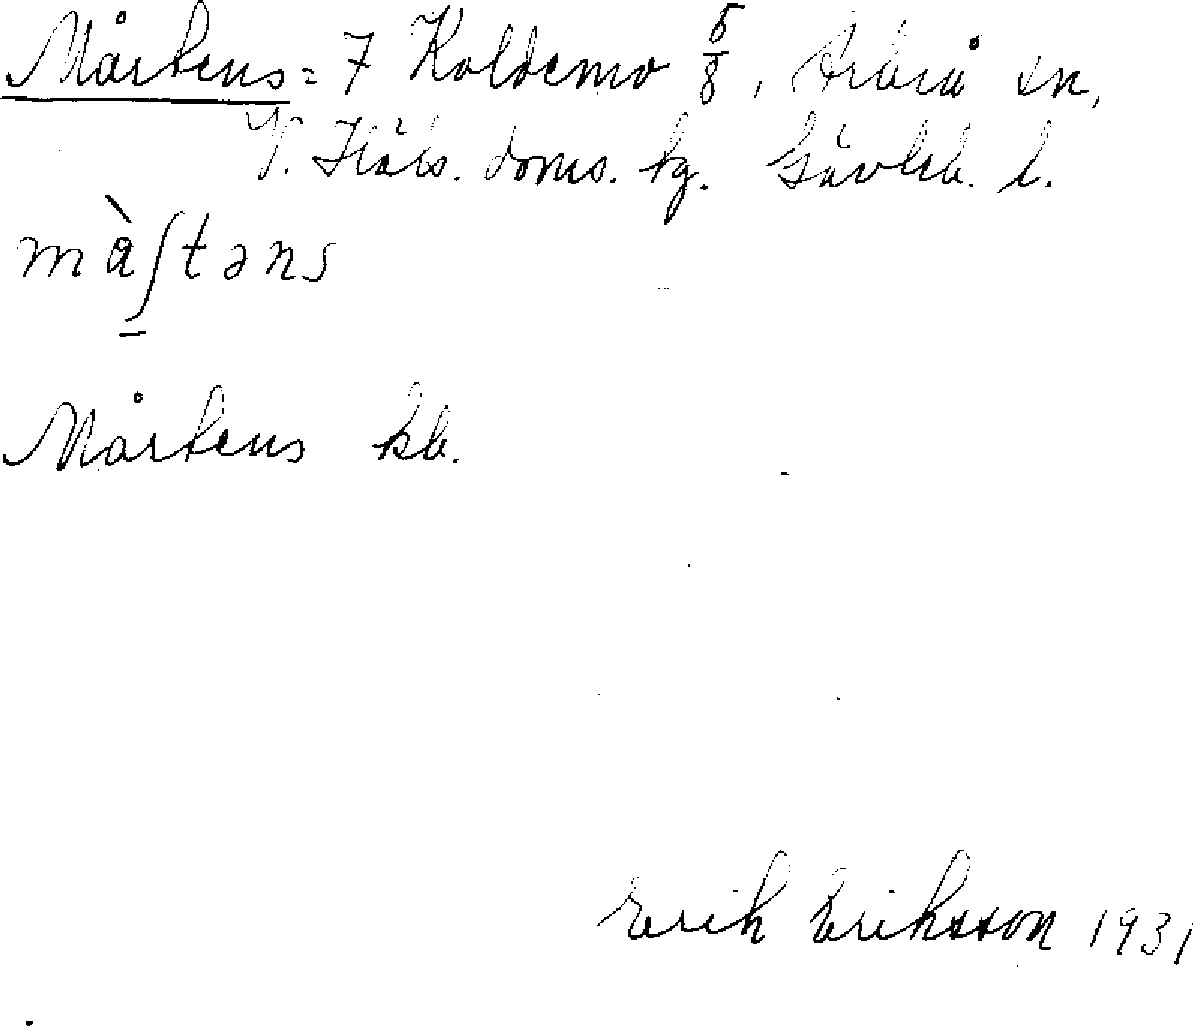 Mårtens = 7 Koldemo 5/8, Arbrå sn,
V. Häls. doms. hg. Gävleb. l.
mà̱ʃtəns
Mårtens kb.
Erik Eriksson 1931